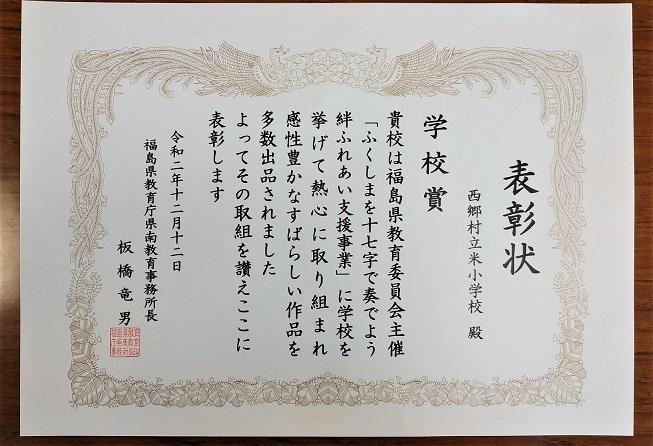 表彰状
西郷村立米小学校 殿
学校賞
貴校は福島県教育委員会主催
「ふくしまを十七字で奏でよう
絆ふれあい支援事業」に学校を
挙げて熱心に取り組まれ
感性豊かなすばらしい作品を
多数出品されました
よってその取組を讃えここに
表彰します
令和二年十二月十二日
福島県教育庁県南教育事務所長
板橋竜男